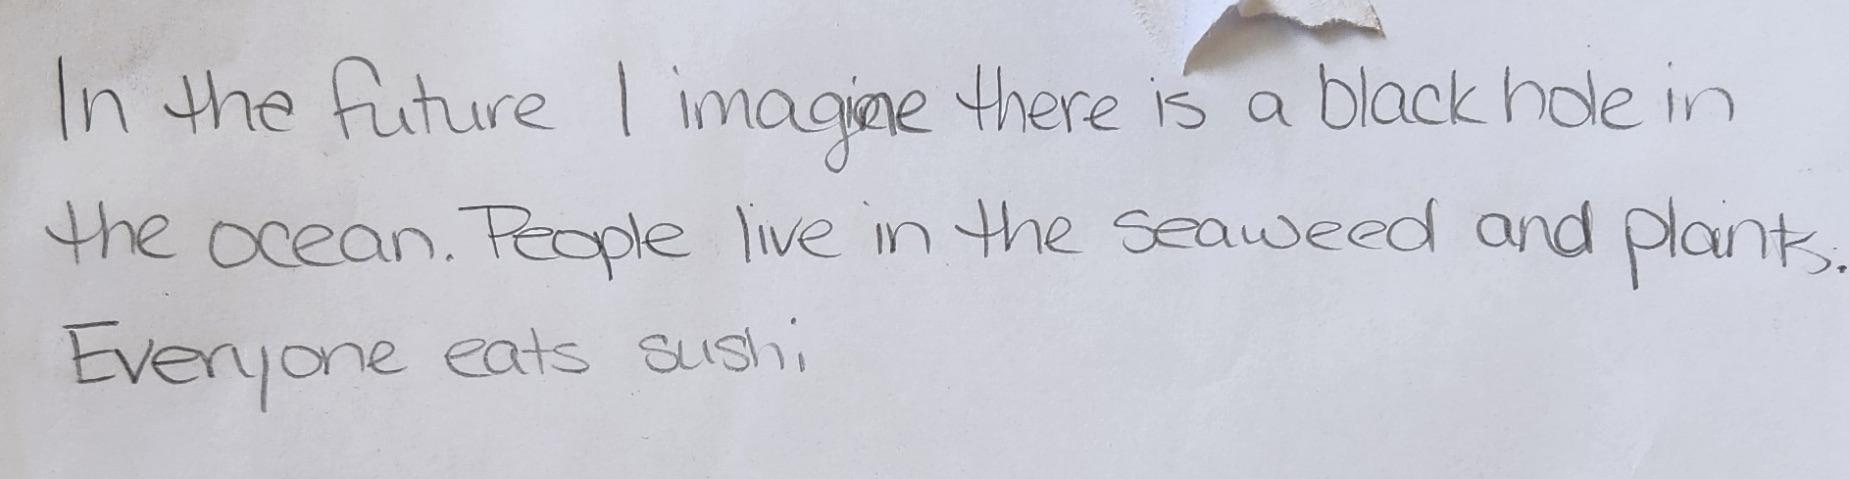 In the future I imagine there is a black hole in
the ocean. People live in the seaweed and plants.
Everyone eats sushi